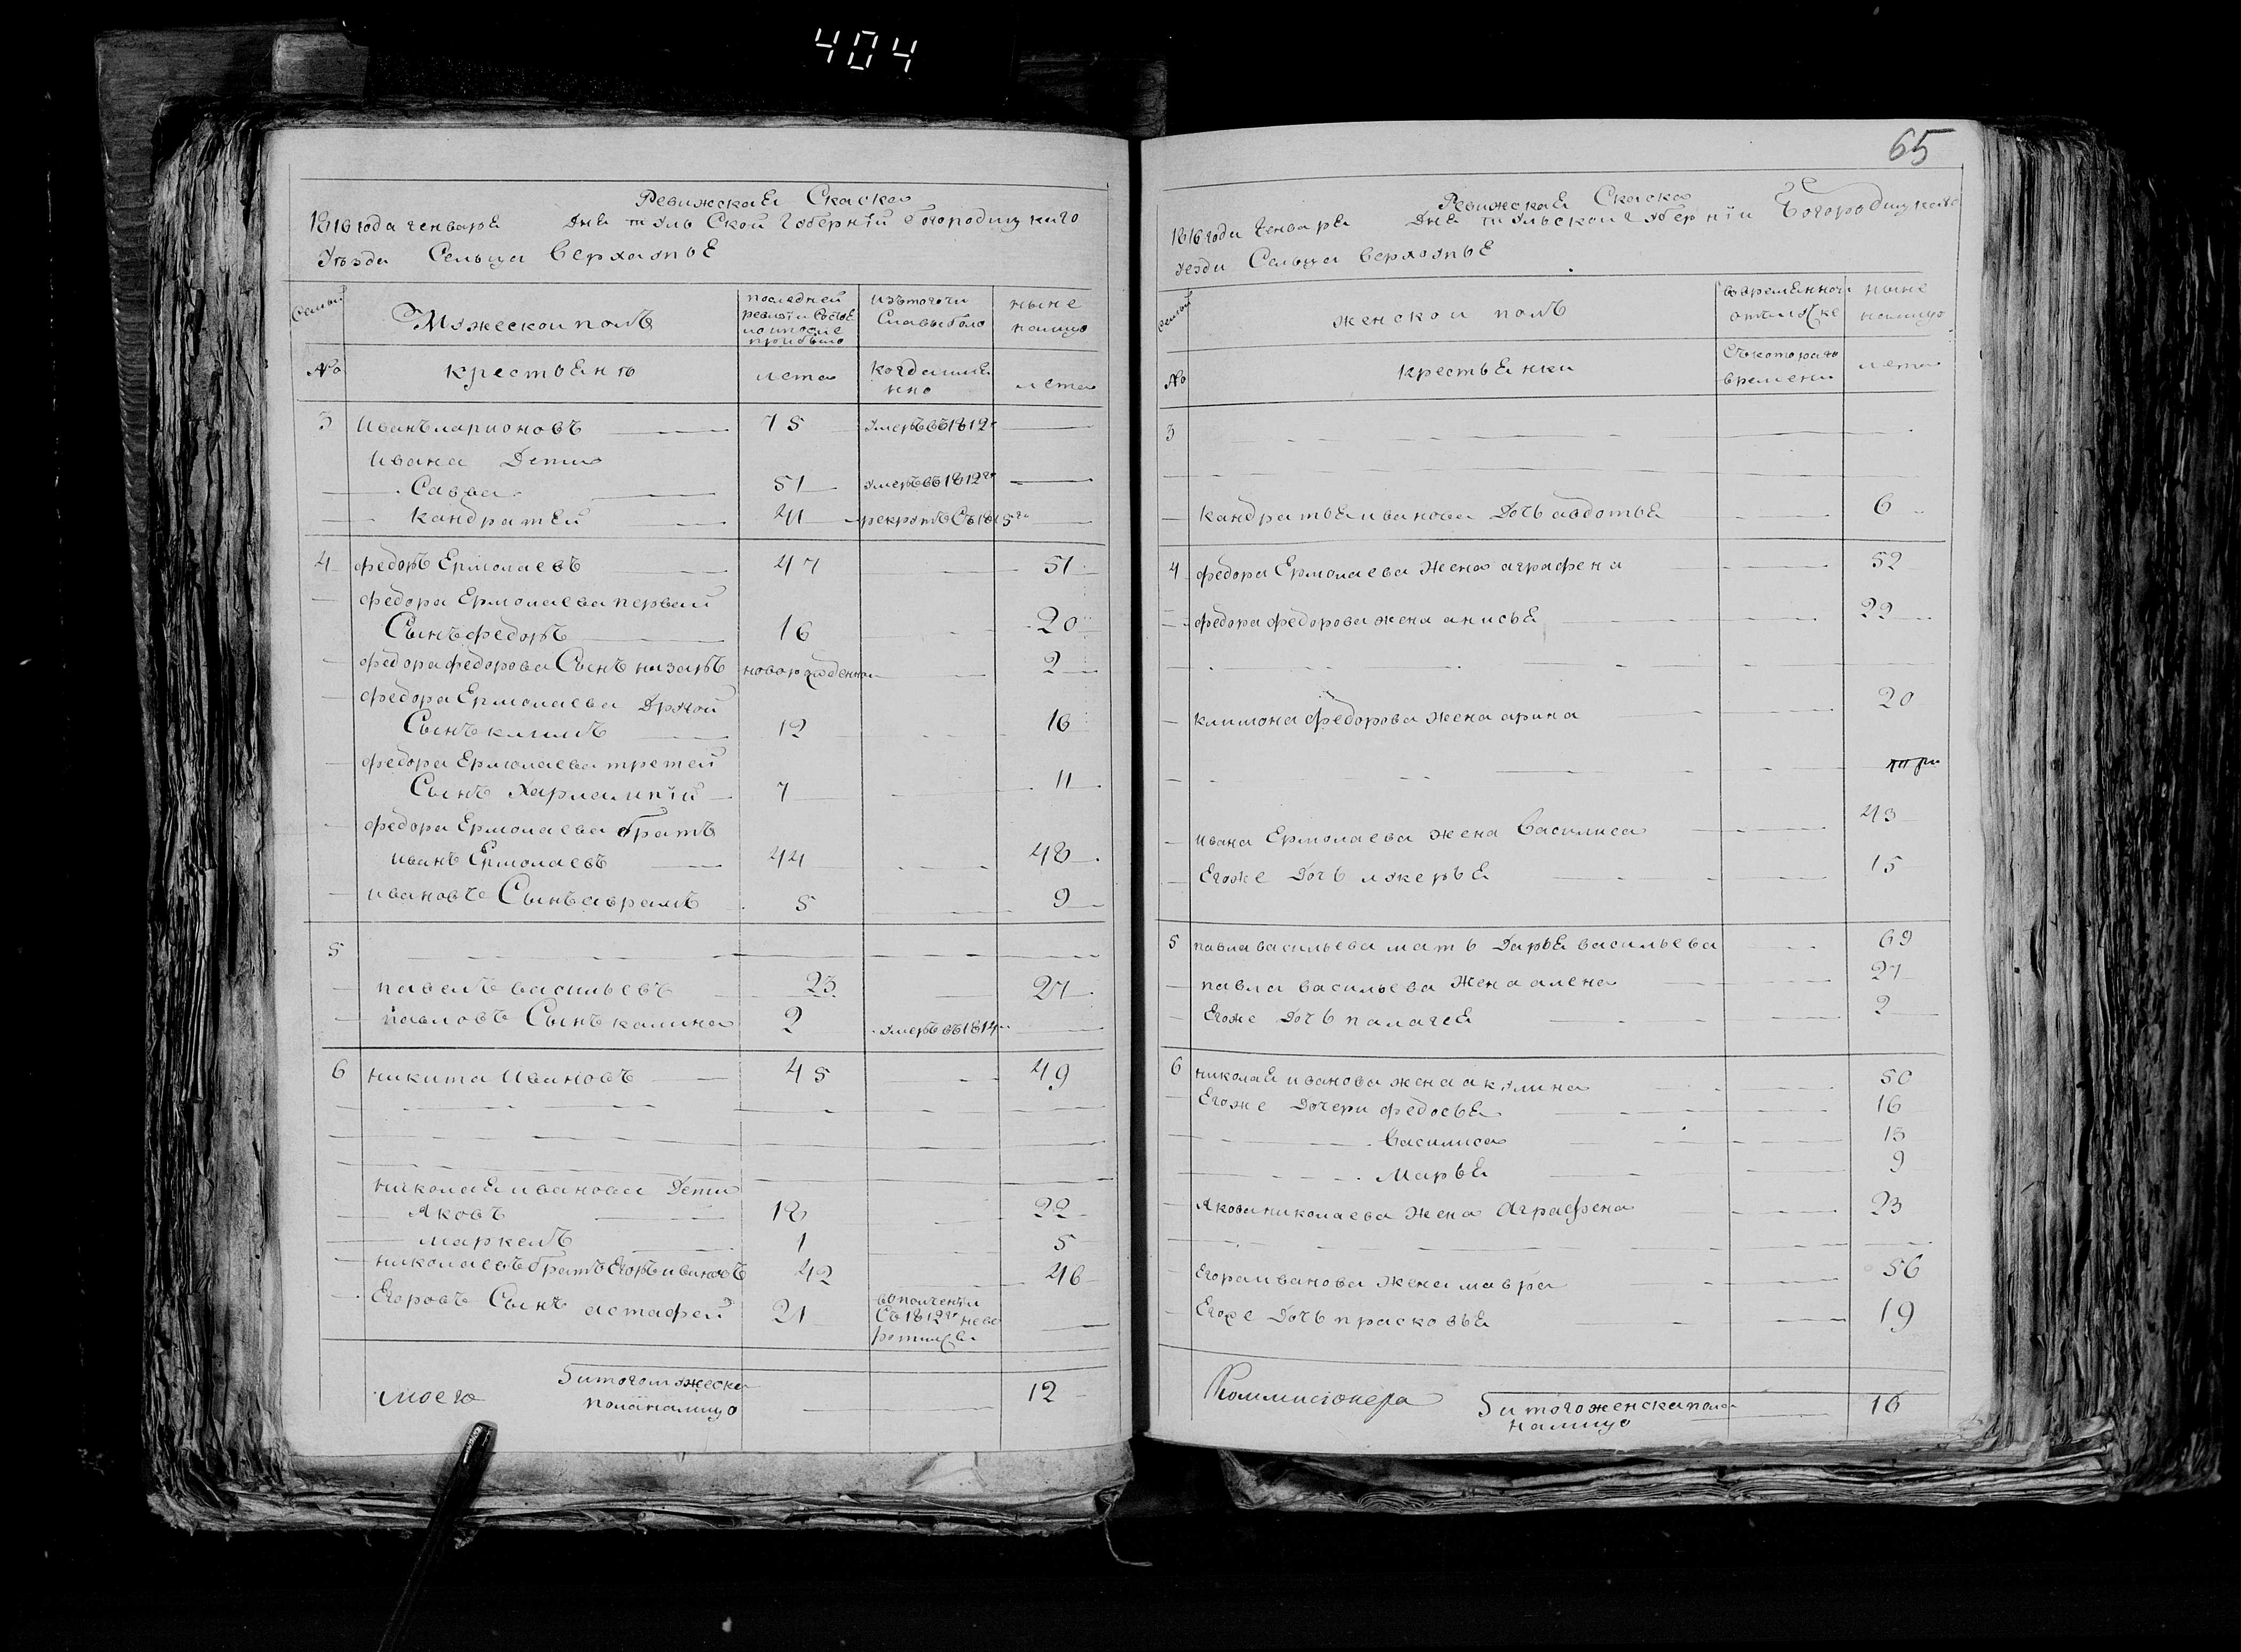 404
Ревижская Скаска
1816 года генваря Дня тульской губернїи богородицкаго
уъзда Сельца верхоупье
Семьи
Мужескои полъ
последней
ревизїи состоя
ло и после
прибыло
изътогочи
Славыбыло
ныне
налицо
№
крестьянъ
лета
когдаимя
нно
лета
3 Иванъ ларионовъ 75 умеръ въ 1812г
ивана Дети
Савва 51 умеръ въ 1812го
кандратей 41 рекрутъ Съ 1815го
4 федоръ Ермолаевъ 47 51
федора Ермолаева первай
Сынъ федоръ 16 20
федора федорова Сынъ назаръ новорожденнои 2
федора Ермолаева Другой
Сынъ климъ 12 16
федора Ермолаева третей
Сынъ харлампїй 7 11
федора Ермолаева братъ
иванъ Ермолаевъ 44 48
ивановъ Сынъ аврамъ 5 9
5
павелъ васильевъ 23 27
павловъ Сынъ калина 2 умеръ въ 1814
6 никита Ивановъ 45 49
николая иванова Дети
Яковъ 18 22
маркелъ 1 5
николаевъ братъ Егоръ ивановъ 42 46
Егоровъ Сынъ астафей 21 вополчении
Съ 1812го нево
ротился
моего
итого мужеска
пола налицо 12
65
Ревижская Скаска
1816 года Генваря Дня тульской губернїи Богородицкаго
уезда Сельца верхоупье
Семьи
женскои полъ
вовременной
отлучке
ныне
налицо
№
крестьянки
Съкотораго
времени
лета
3
кандратья иванова Дочь авдотья 6
4 федора Ермолаева жена аграфена 52
федора федорова жена анисья 22
климона федорова жена арина 20
ивана Ермолаева жена василиса 43
Егоже Дочь лукерья 15
5 павла васильева мать Дарья васильева 69
павла васильева жена алена 27
Егоже Дочь палагея 2
6 николая иванова жена акулина 50
Егоже Дочери федосья 16
василиса 15
Марья 9
Якова николаева жена Аграфена 23
Егора иванова жена мавра 56
Егоже Дочь прасковья 19
Коммисїонера
итого женска пола
налицо 16